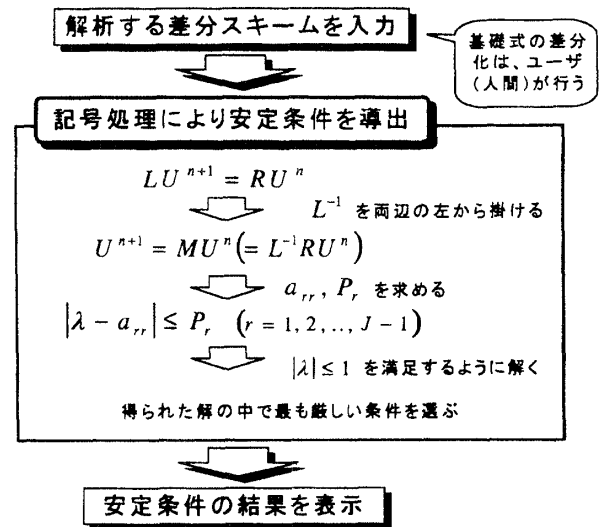 解析する差分スキームを入力
基礎式の差分
化は、ユーザ
(人間)が行う
記号処理により安定条件を導出
LU^{n+1} = RU^{n}
L^{-1} を両辺の左から掛ける
U^{n+1} = MU^{n}(= L^{-1}RU^{n})
a_{rr}, P_{r} を求める
|λ − a_{rr}| ≤ P_{r} (r = 1, 2, .., J − 1)
|λ| ≤ 1 を満足するように解く
得られた解の中で最も厳しい条件を選ぶ
安定条件の結果を表示